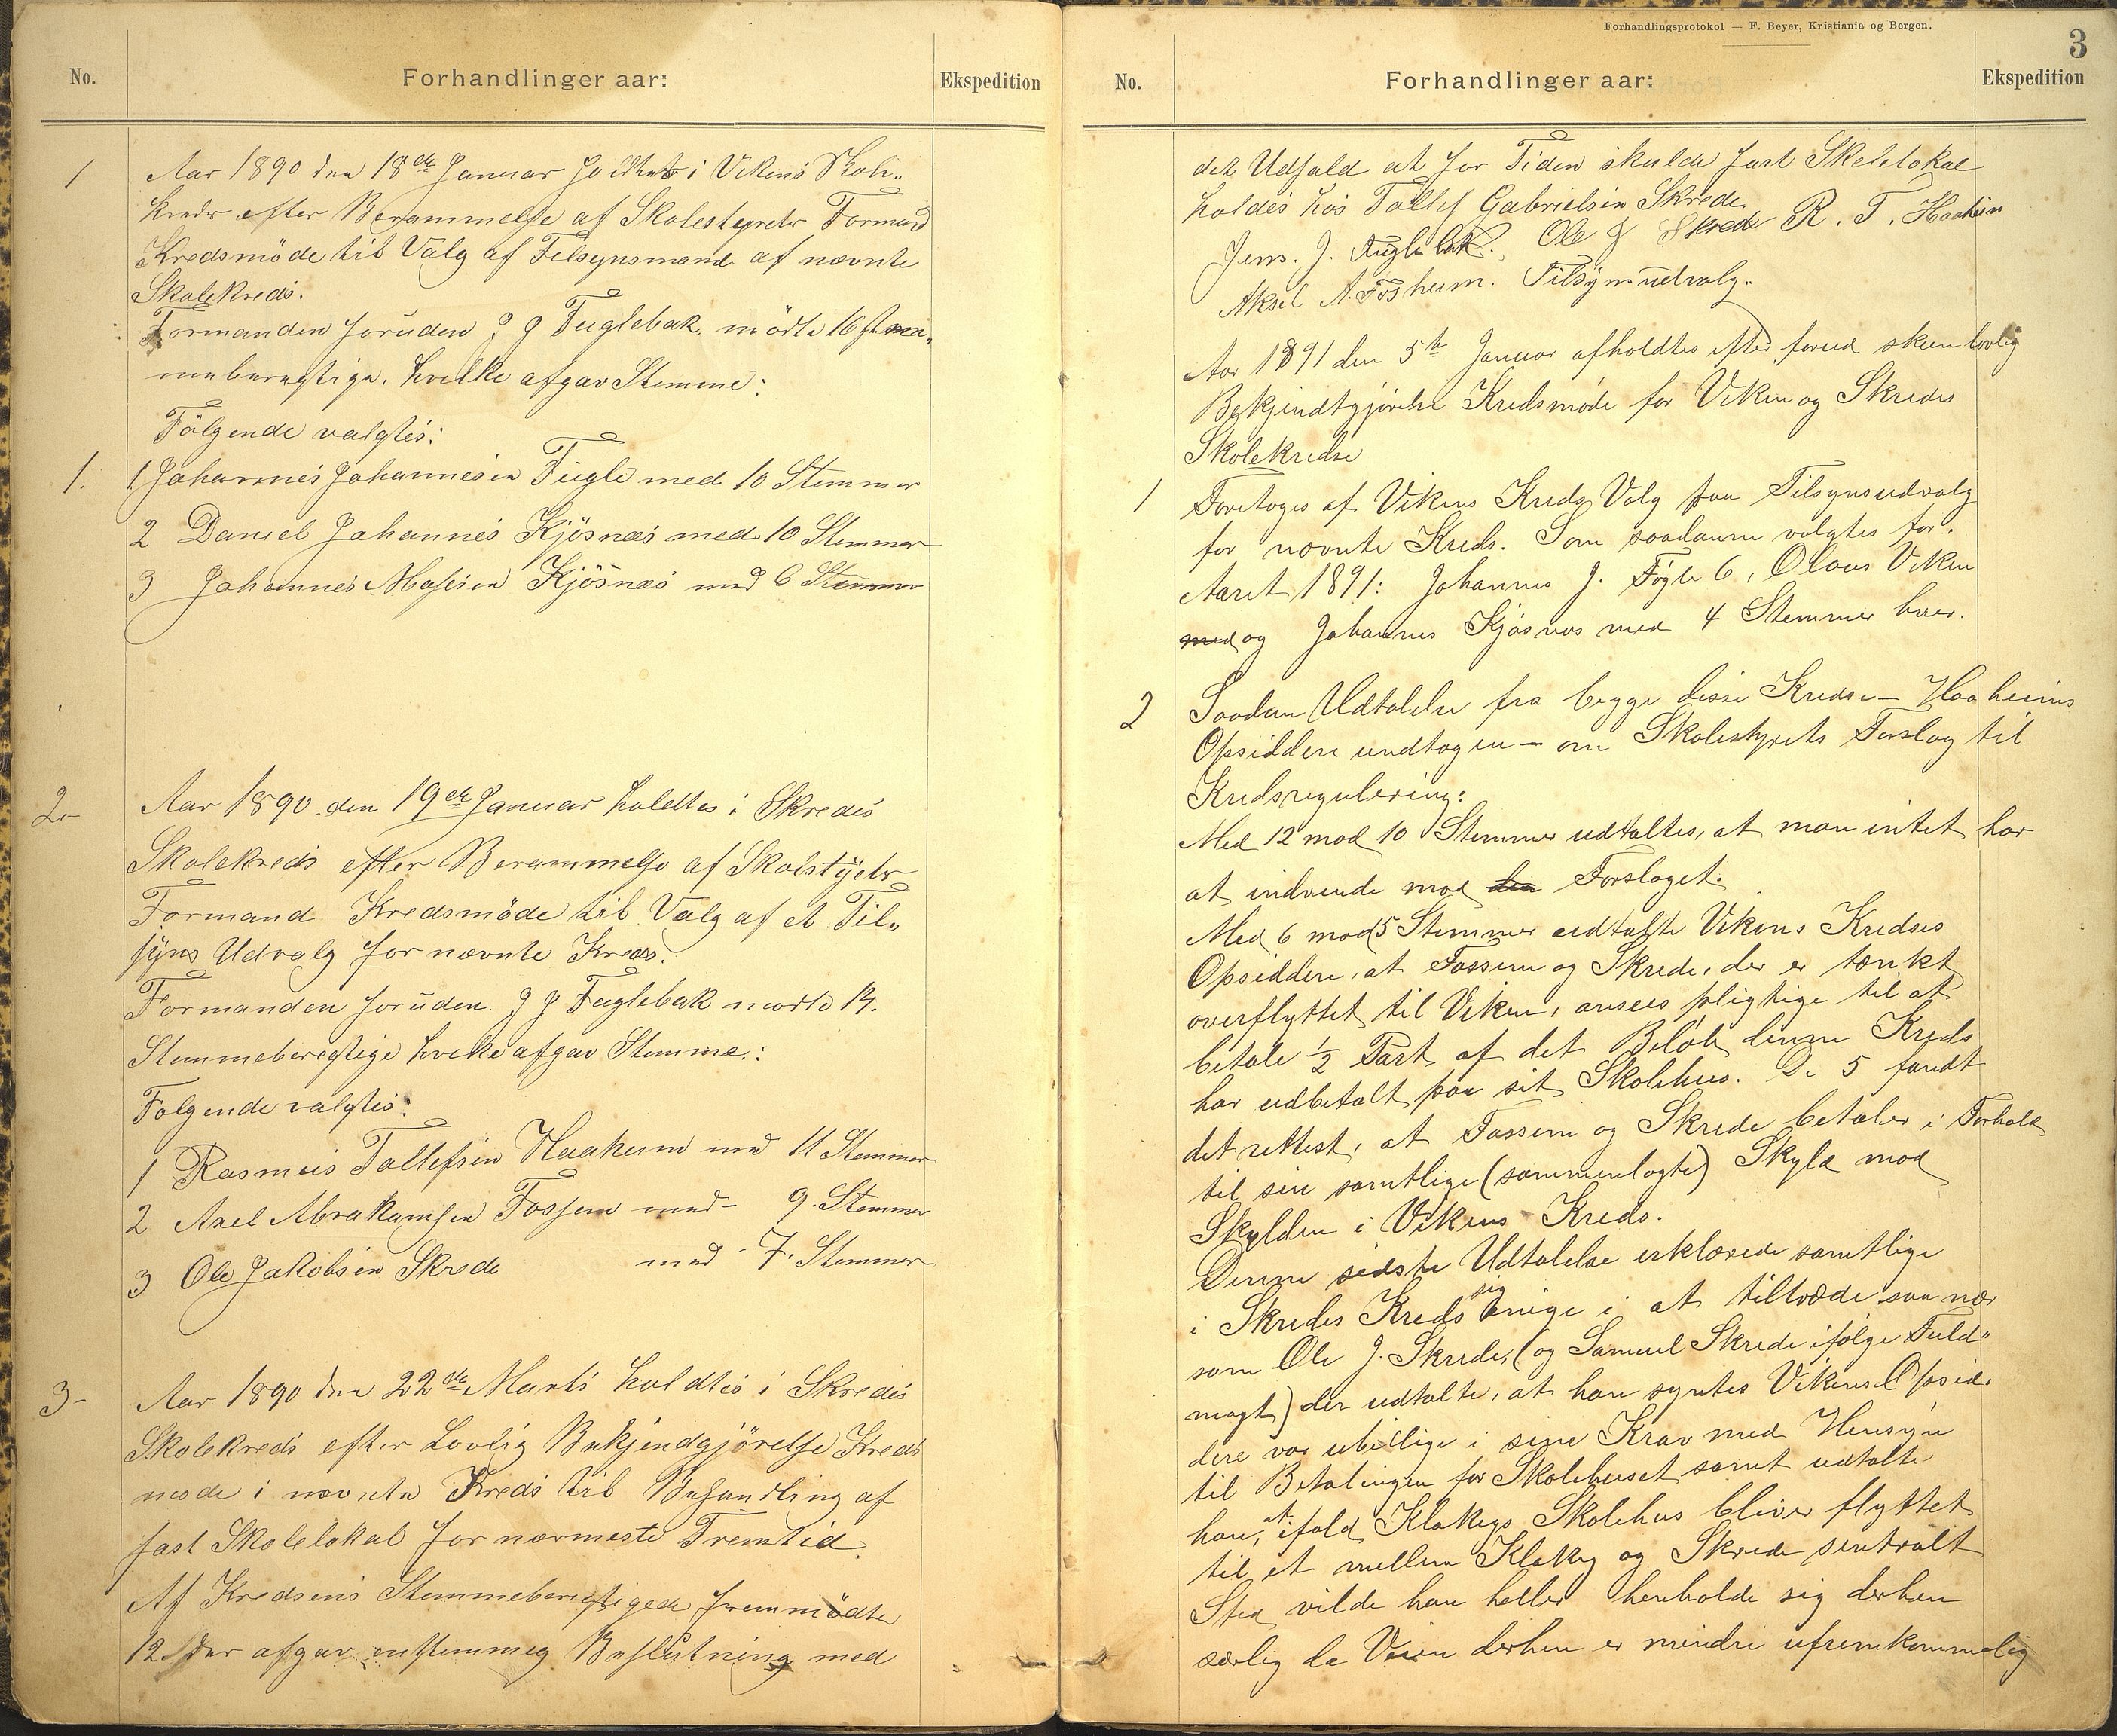 No.
Forhandlinger aar:
Ekspedition
1
Aar 1890 den 18de Januar holdtes i Vikens Skole-
kreds efter Berammelse af Skolestyrets Formand
Kredsmöde til Valg af Tilsynsmænd af nævnte
Skolekreds.
Formanden foruden J J Fuglebak, mödte 16 stem-
meberegtige, hvilke afgav Stemme:
Fölgende valgtes:
1.
1 Johannes Johannesen Fugle med 10 Stemmer
2 Daniel Johannes Kjösnæs med 10 Stemmer
3 Johannes Mosesen Kjösnæs med 6 Stemmer
2-
Aar 1890 den 19de Januar holdtes i Skredes
Skolekreds efter Berammelse af Skolstyrets
Formand Kredsmöde til Valg af et Til-
syns Udvalg for nævnte Kreds.
Formanden foruden J J Fuglebak mødte 14.
Stemmeberegtige hvilke afgav Stemme:
Følgende valgtes:
1 Rasmus Tollefsen Haaheim med 11 Stemmer
2 Axel Abrahamsen Fossem med- 9. Stemmer
3 Ole Jakobsen Skrede med - 7. Stemmer
3-
Aar 1890 den 22de Marts holdtes i Skredes
Skolekreds efter Lovlig Bekjendgjörelse Kreds
møde i nævnte Kreds til Behandling af
fast Skolelokal for nærmeste Fremtid.
Af Kredsens Stemmeberegtigede fremmödte
12 der afgav enstemmig Beslutning med
Forhandlingsprotokol — F. Beyer, Kristiania og Bergen.
3
No.
Forhandlinger aar:
Ekspedition
det Udfald at for Tiden skulde fast Skolelokal
holdes hos Tollef Gabrielsen Skrede
Jens. J. Fuglebak. Ole J Skrede R. T. Haaheim
Aksel A. Fosheim. Tilsynsudvalg.
Aar 1891 den 5te Januar afholdtes efter forud skeen lovlig
Bekjendtgjørelse Kredsmøde for Viken og Skredes
Skolekredse
1
Foretoges af Vikens Kreds Valg paa Tilsynsudvalg
for nævnte Kreds. Som saadanne valgtes for
Aaret 1891: Johannes J. Føgle 6, Olaus Viken
med og Johannes Kjøsnæs med 4 Stemmer hver.
2
Saadan Udtalelse fra begge disse Kredse - Haaheims
Opsiddere undtagen - om Skolestyrets Forslag til
Kredsregulering:
Med 12 mod 10 Stemmer udtaltes, at man intet har
at indvende mod den Forslaget.
Med 6 mod 5 Stemmer udtalte Vikens Kredses
Opsiddere, at Fossem og Skrede, der er tænkt
overflyttet til Viken, ansees pligtige til at
betale ½ Part af det Beløb denne Kreds
har udbetalt paa sit Skolehus. De 5 fandt
det rettest, at Fossem og Skrede betaler i Forhold
til sin samtlige (sammenlagte) Skyld mod
Skylden i Vikens Kreds.
Denne sidste Udtalelse erklærede samtlige
i Skredes Kreds sig enige i at tiltræde saa nær
som Ole J. Skrede, (og Samuel Skrede ifølge Fuld-
magt) der udtalte, at han syntes Vikens Opsid-
dere var ubillige i sine Krav med Hensyn
til Betalingen for Skolehuset samt udtalte
han, at ifald Klakegs Skolehus bliver flyttet
til et mellem Klakeg og Skrede sentralt
Sted vilde han heller henholde sig derhen
særlig da Veien derhen er mindre ufremkommelig